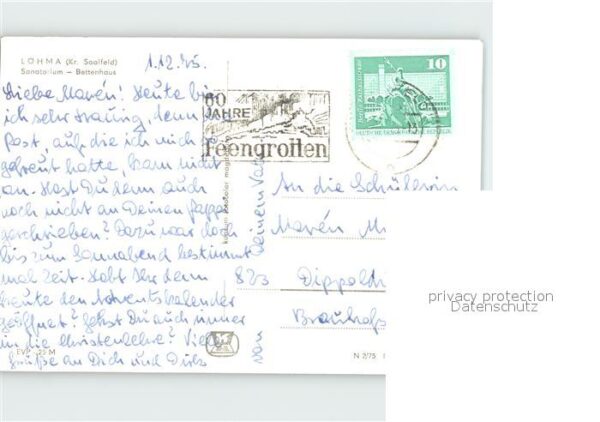 LÖHMA (Kr. Saalfeld)
Sanatorium – Bettenhaus
1.12.75.
Liebe Marén! Heute bin
ich sehr traurig, denn
Post, auf die ich mich
gefreut hatte, kam nicht
an. Hast Du denn auch
noch nicht an Deinen Pappa
geschrieben? Dazu war doch
bis zum Sonnabend bestimmt
mal Zeit. Habt Ihr denn
heute den Adventskalender
geöffnet? Gehst Du auch immer
in die Christenlehre? Viele
Grüße an Dich und
von Deinem
EVP
M
60
JAHRE
Feengrotten
10
DEUTSCHE DEMOKRATISCHE REPUBLIK
An die Schülerin
Marén M
Dippoldi
Brauhofs
N 2/75
privacy protection
Datenschutz